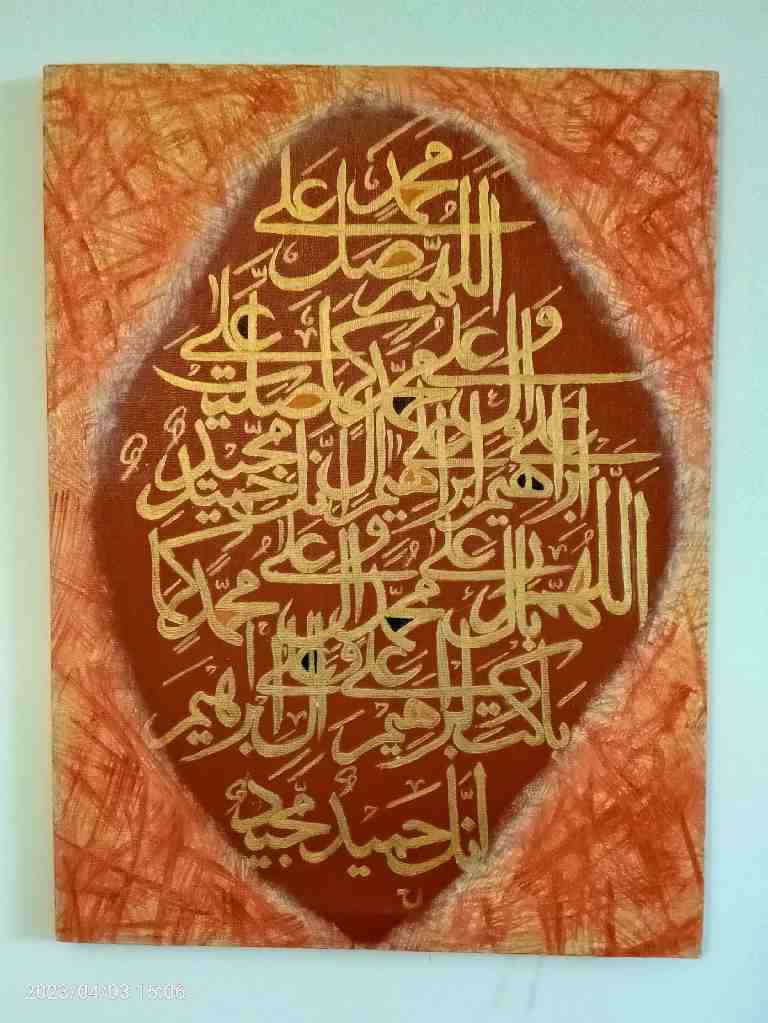 اللهم صل على محمد
وعلى آل محمد كما صليت على
إبراهيم وعلى آل إبراهيم إنك حميد مجيد
اللهم بارك على محمد وعلى آل محمد كما
باركت على إبراهيم وعلى آل إبراهيم
إنك حميد مجيد
2023/04/03 15:06